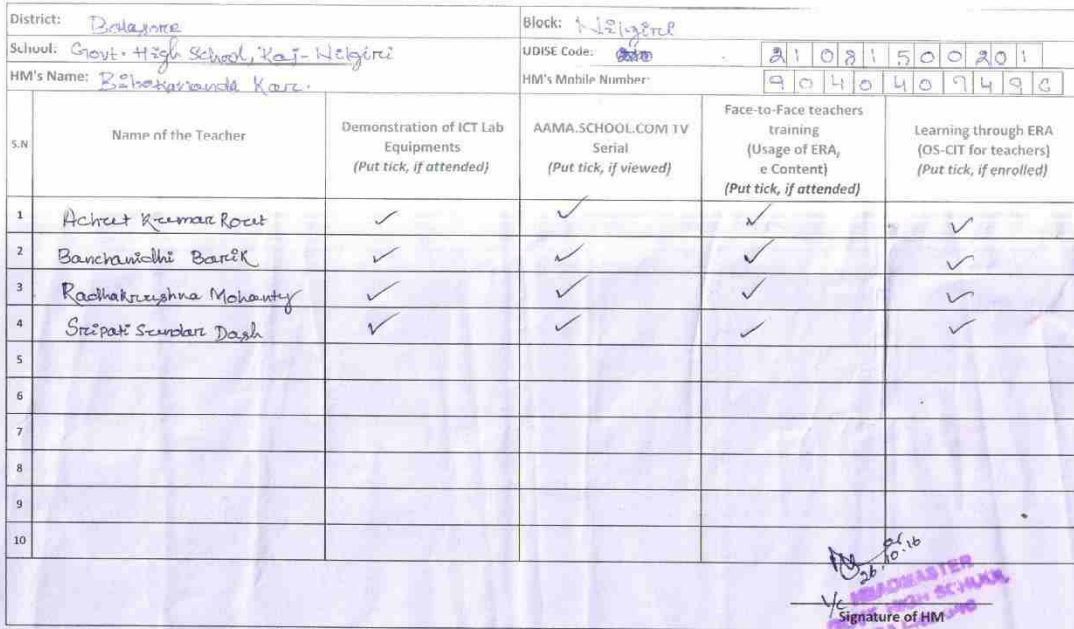 District: Balasore Block: Nilgiri
School: Govt. High School, Raj-Nilgiri UDISE Code: 21081500201
HM's Name: Kar. HM's Mobile Number: 904040
S.N Name of the Teacher Demonstration of ICT Lab Equipments (Put tick, if attended) AAMA.SCHOOL.COM TV Serial (Put tick, if viewed) Face-to-Face teachers training (Usage of ERA, e Content) (Put tick, if attended) Learning through ERA (OS-CIT for teachers) (Put tick, if enrolled)
1 Kumar Rout ✓ ✓ ✓ ✓
2 Banchanidhi Barik ✓ ✓ ✓ ✓
3 Radhakrushna Mohanty ✓ ✓ ✓ ✓
4 Sripati Sundar Dash ✓ ✓ ✓ ✓
5
6
7
8
9
10
26.10.16
HEADMASTER
I/c HIGH SCHOOL
Signature of HM